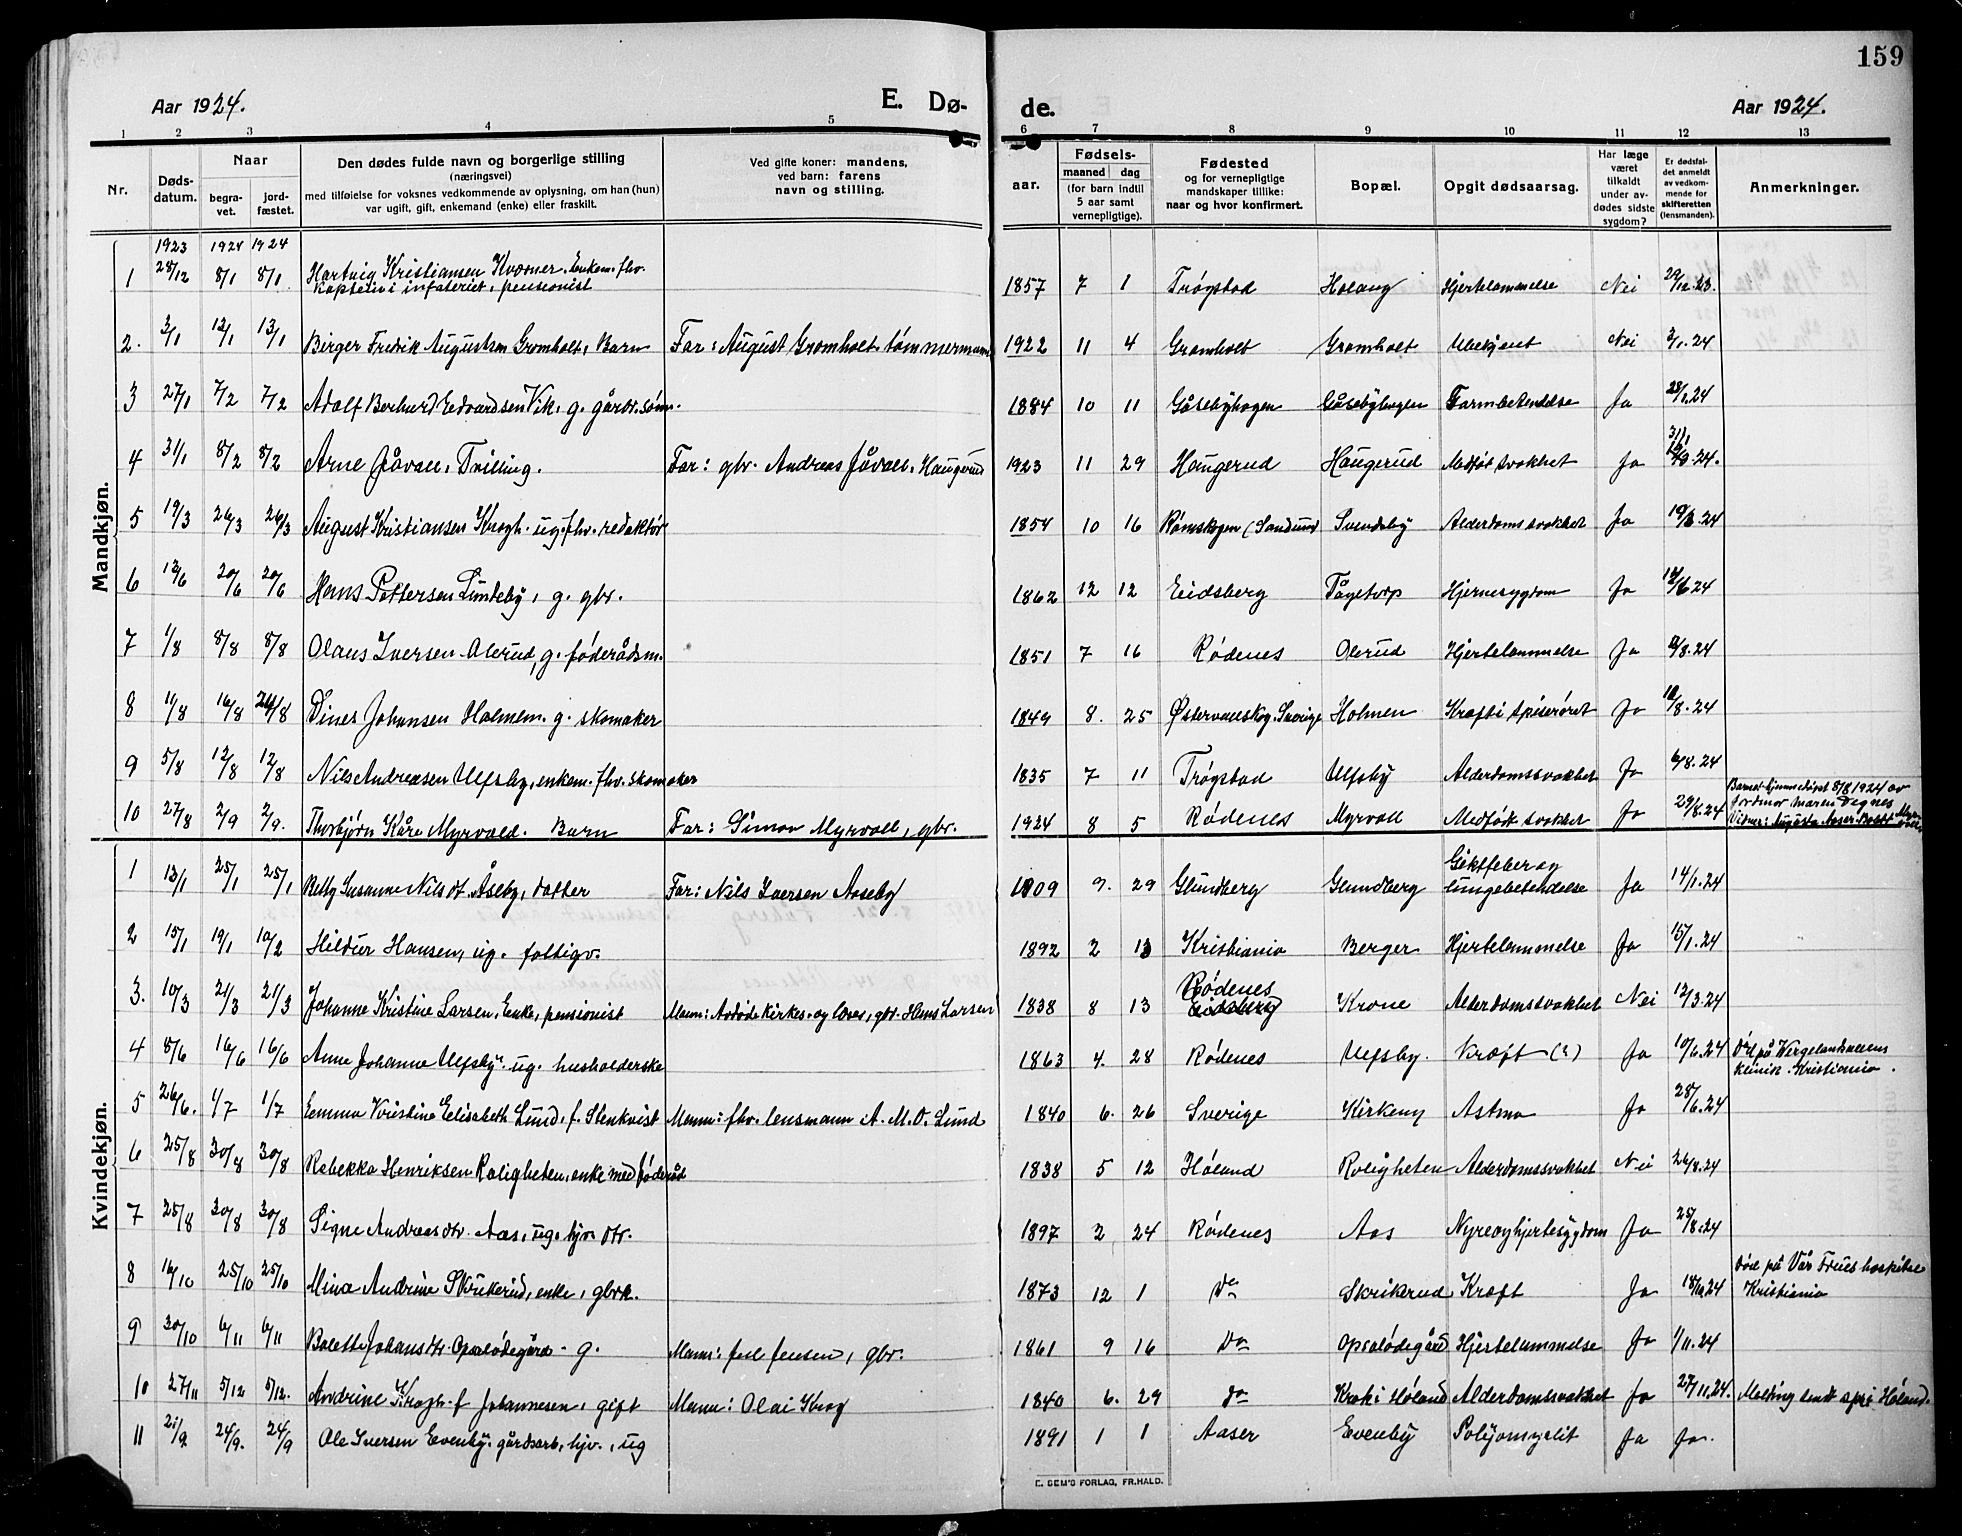 159
Aar 1924. E. Dø- de. Aar 1924.
1 2 3 4 5 6 7 8 9 10 11 12 13
Nr. Døds-datum. Naar begra-vet. jord-fæstet. Den dødes fulde navn og borgerlige stilling (næringsvei) med tilføielse for voksnes vedkommende av oplysning, om han (hun) var ugift, gift, enkemand (enke) eller fraskilt. Ved gifte koner: mandens, ved barn: farens navn og stilling. Fødsels- aar. maaned dag (for barn indtil 5 aar samt vernepligtige). Fødested og for vernepligtige mandskaper tillike: naar og hvor konfirmert. Bopæl. Opgit dødsaarsag. Har læge været tilkaldt under av-dødes sidste sygdom? Er dødsfal-det anmeldt av vedkom-mende for skifteretten (lensmanden). Anmerkninger.
Mandkjøn.
1923 1924 1924
1 28/12 8/1 8/1 Hartvig Kristiansen Kværner. Enkem. fhv. 1857 7 1 Trøgstad Holang Hjertelammelse Nei 29/12.23.
kaptein i infateriet, pensionist
2. 3/1 13/1 13/1 Birger Fredrik Augustsen Gromholt, Barn Far: August Gromholt tømmermann 1922 11 4 Gromholt Gromholt Ubekjent Nei 3/1.24
3 27/1 7/2 7/2 Adolf Berhard Edvardsen Vik, g. gårdbr. sønn. 1884 10 11 Gåsebyhagen Gåsebyhagen Tarmbetendelse Ja 28/1.24
4 31/1 8/2 8/2 Arne Jåvall, Tvilling. Far: gbr. Andreas Jåvall, Haugerud 1923 11 29 Haugerud Haugerud Medfødt svakhet Ja 31/1.24.
5 19/3 26/3 26/3 August Kristiansen Krogh. ug. fhv. redaktør 1854 10 16 Rømskogen (Sandsund Svendsby Alderdomssvakhet Ja 19/3.24
6 12/6 20/6 20/6 Hans Pettersen Lundeby, g. gbr. 1862 12 12 Eidsberg Tågetorp Hjernesygdom Ja 14/6 24
7 1/8 8/8 8/8 Olaus Iversen Olerud, g. føderådsm. 1851 7 16 Rødenes Olerud Hjertelammelse Ja 6/8.24
8 11/8 16/8 24/8 Dines Johansen Holmem. g. skomaker 1849 8. 25 Østervallskog. Sverige Holmen Kræft i spiserøret Ja 18/8.24
9 5/8 12/8 12/8 Nils Andreasen Ulfsby, enkem. fhv. skomaker 1835 7 11 Trøgstad Ulfsby Alderdomssvakhet Ja 6/8.24
10 27/8 2/9 2/9. Thorbjørn Kåre Myrvold. Barn Far: Simon Myrvoll, gbr. 1924 8 5 Rødenes Myrvoll Medfødt svakhet Ja 29/8.24 Barnet hjemmedøpt 8/8 1924 av
jordmor Maren Degnes
Vidner: Augusta Aaser, Bolette Myrvoll
Kvindekjøn.
1 13/1 25/1 25/1 Betty Susanne Nilsdt. Åseby, datter Far: Nils Iversen Aaseby 1909 9. 29 Glundberg Glundberg Giktfeber og lungebetendelse Ja 14/1.24
2 15/1 19/1 10/2 Hildur Hansen, ug. fattigv. 1892 2 13 Kristiania Berger Hjertelammelse Ja 15/1.24
3. 10/3 21/3 21/3 Johanne Kristine Larsen, Enke, pensionist Mann: Avdøde kirkes. og lærer, gbr. Hans Larsen 1838 8 13 Rødenes Eidsberg Krone Alderdomssvakhet Nei 12/3.24
4 8/6 16/6 16/6 Anne Johanne Ulfsby. ug. husholderske 1863 4. 28 Rødenes Ulfsby. Kræft (?) Ja 10/6.24 Død på Wergelandveiens
klinik. Kristiania.
5 26/6. 1/7 1/7 Emma Kristine Elisabeth Lund, f. Stenkvist Mann: fhv. lensmann A. M. O. Lund 1840 6. 26 Sverige Kirkeng Astma Ja 28/6.24
6 25/8 30/8 30/8 Rebekka Henriksen Roligheten, enke med føderåd 1838 5 12 Høland Roligheten Alderdomssvakhet Nei 26/8.24
7 25/8 30/8 30/8 Signe Andreasdtr. Aas, ug. hjv. dtr. 1897 2 24 Rødenes Aas Nyre og hjertesygdom Ja 25/8.24
8 16/10 25/10 25/10 Mina Andrine Skrikerud, enke, gbrk. 1873 12 1 do Skrikerud Kræft Ja 18/10.24 Død på Vår Frues hospital
Kristiania
9 30/10 6/11 6/11 Bolette Johansdtr. Opsalødegård. g. Mann: Joel Jensen, gbr. 1861 9 16 Do Opsalødegård Hjertelammelse Ja 1/11.24
10 27/11 5/12 5/12. Andrine Krogh. f Johannesen, gift Mann: Olai Krog 1840 6. 29 do Krok i Høland Alderdomssvakhet Ja 27/11.24. Melding sendt spr i Høland.
11 21/9 24/9. 24/9 Ole Iversen Evenby. gårdsarb, hjv., ug 1891 1 1 Aaser Evenby Polyomyelit Ja Ja.
E. SEM'S FORLAG, FR.HALD.